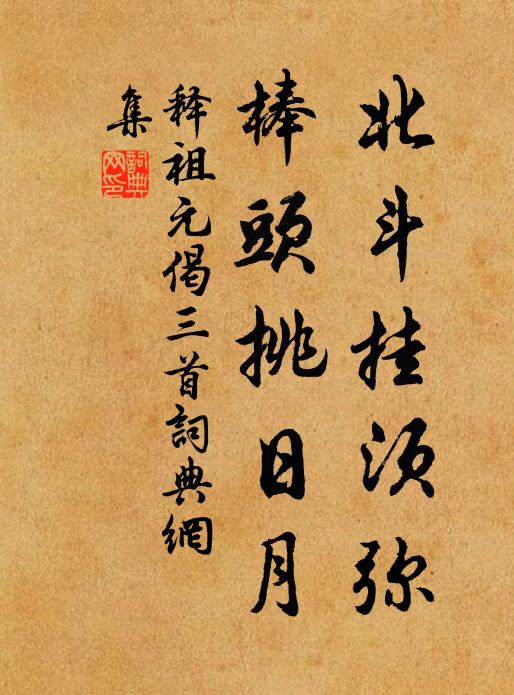 北斗挂须弥
棒頭挑日月
释祖元偈三首詞典網
集
詞典
网印